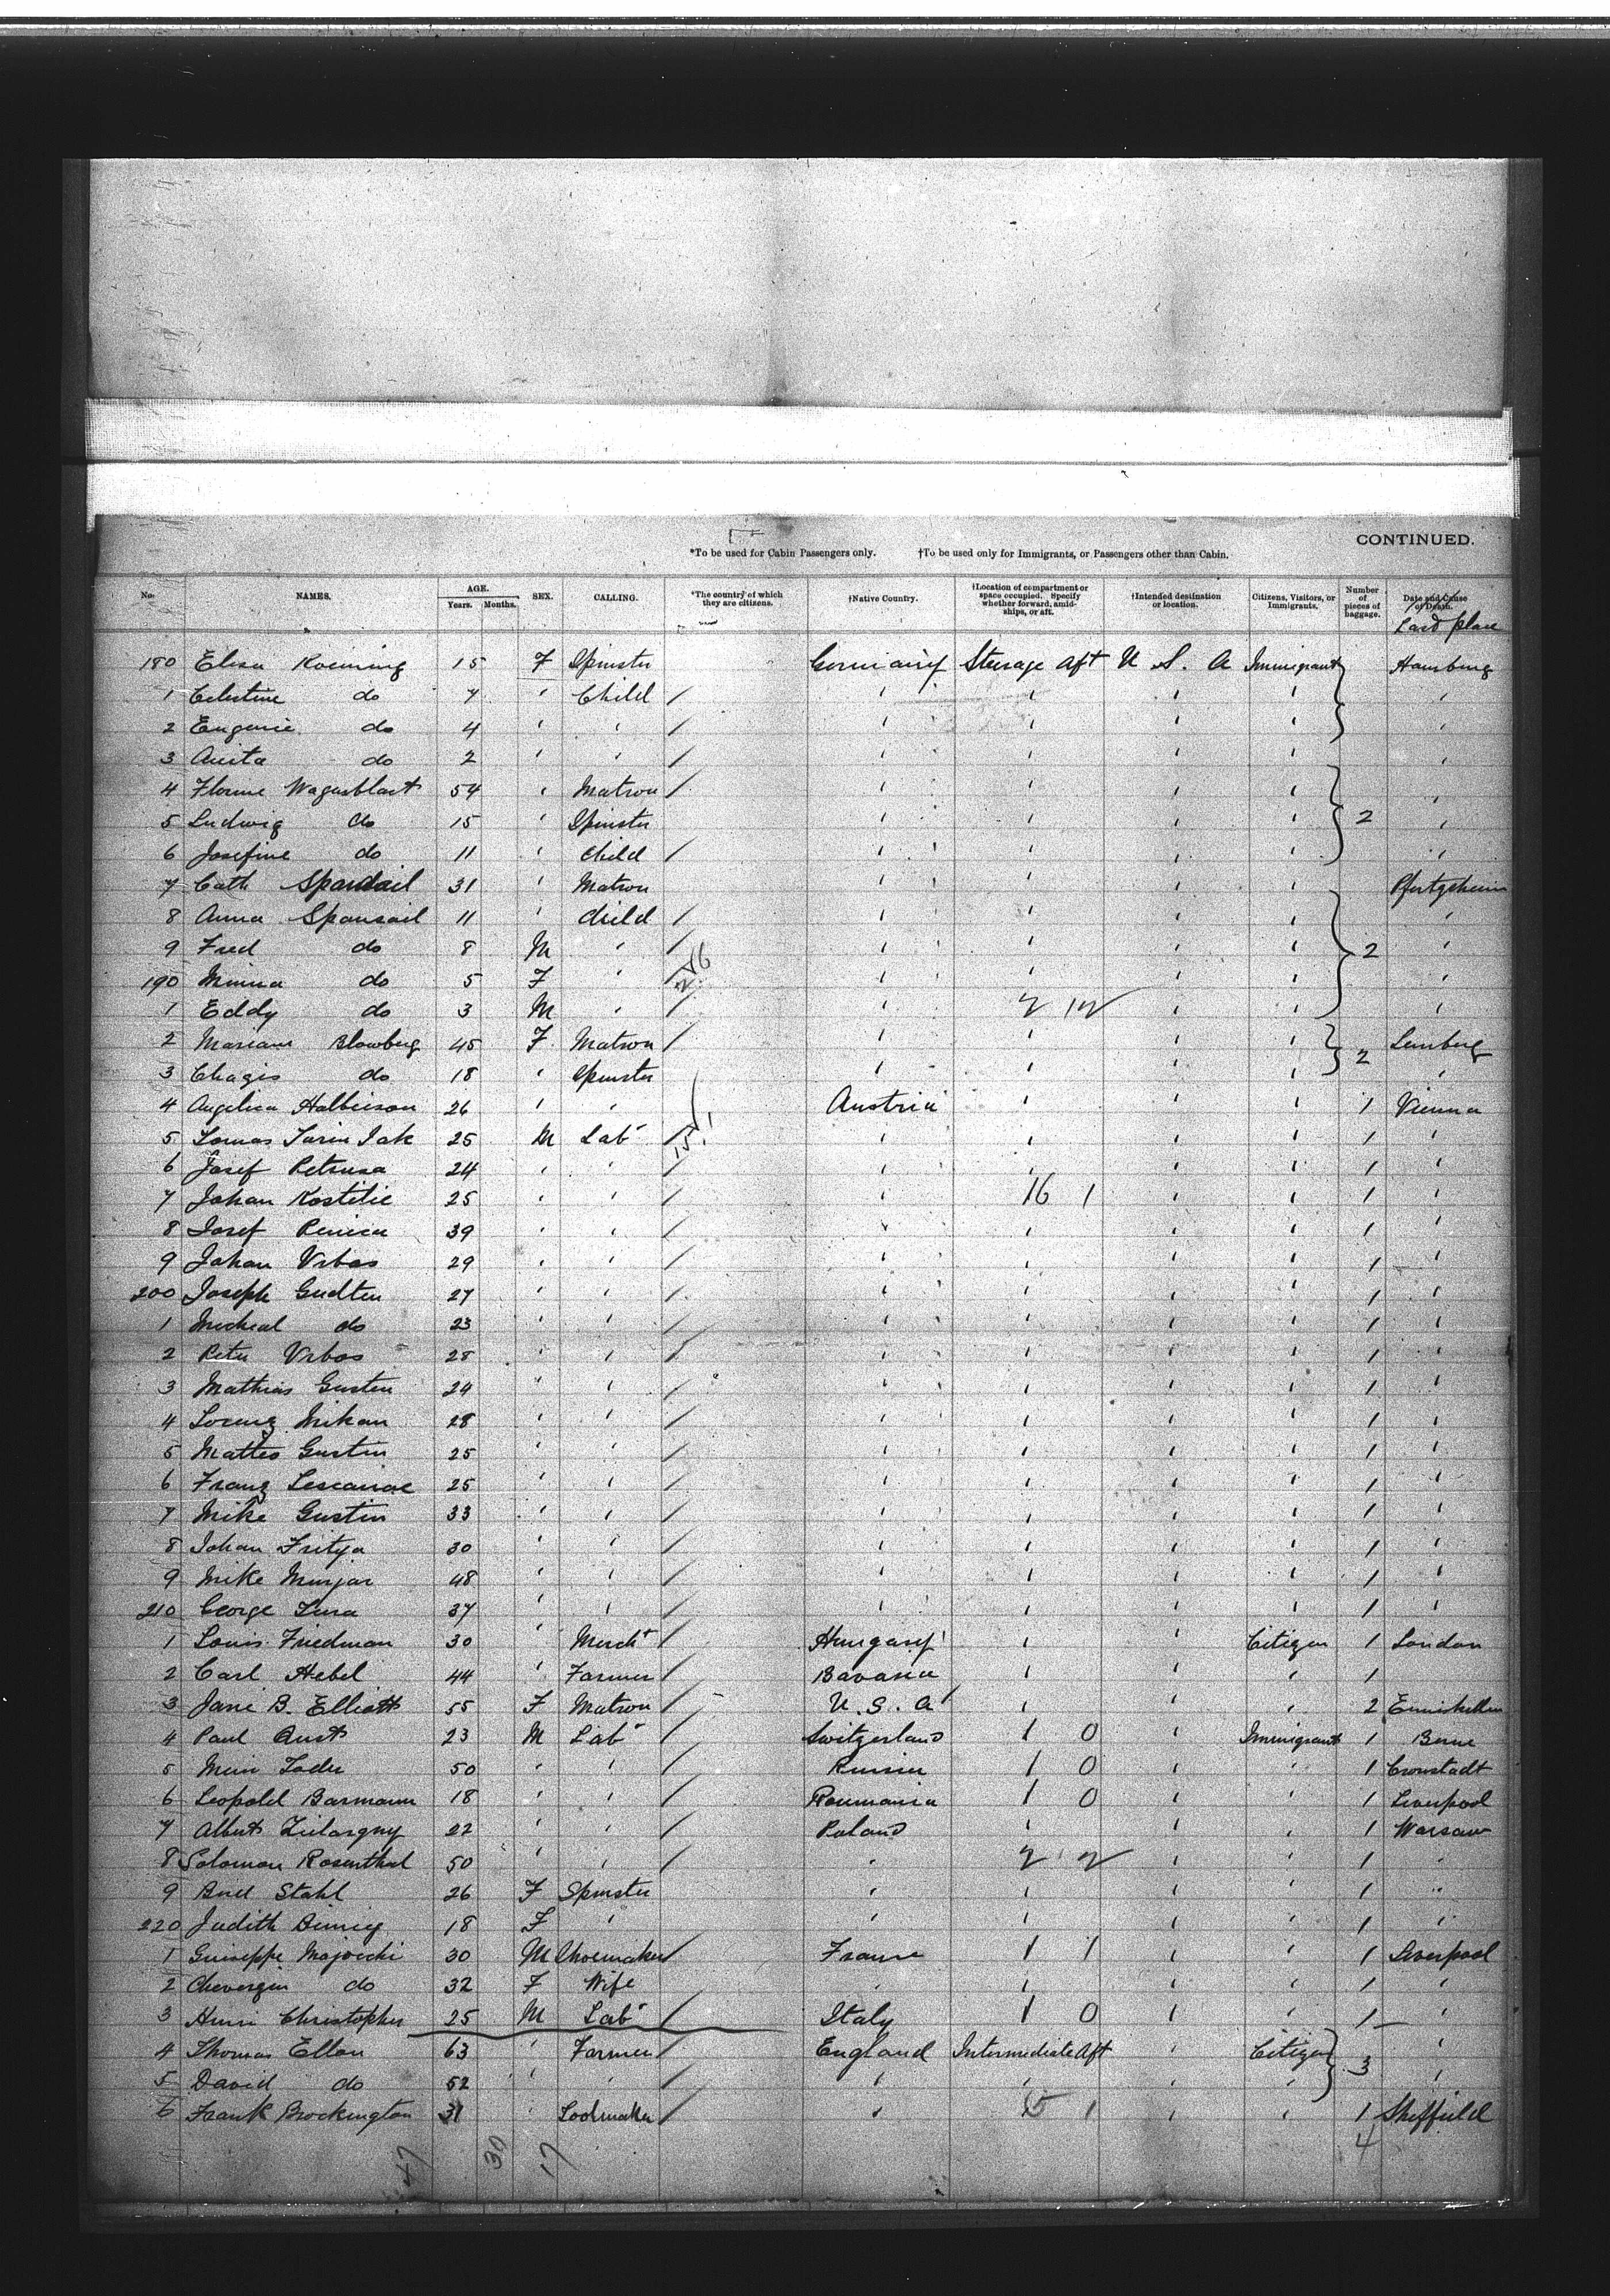 CONTINUED.
*To be used for Cabin Passengers only. †To be used only for Immigrants, or Passengers other than Cabin.
No. NAMES. AGE. Years. Months. SEX. CALLING. *The country of which they are citizens. †Native Country. †Location of compartment or space occupied. Specify whether forward, amidships, or aft. †Intended destination or location. Citizens, Visitors, or Immigrants. Number of pieces of baggage. Date and Cause of Death. Last place
180 Elisa Roenning 15 F Spinster Germany Steerage Aft U. S. A Immigrant Hamburg
1 Celestine do 7 ' Child / ' ' ' ' '
2 Eugenie do 4 ' ' / ' ' ' ' '
3 Anita do 2 ' ' / ' ' ' ' '
4 Wagenblast 54 ' Matron / ' ' ' ' '
5 Ludwig do 15 ' Spinster ' ' ' ' 2 '
6 Josefine do 11 ' Child / ' ' ' ' '
7 Cath 31 ' Matron ' ' ' '
8 Anna Spansail 11 ' child / ' ' ' ' '
9 Fred do 8 M ' / ' ' ' ' 2 '
190 Minna do 5 F ' ' ' ' ' '
1 Eddy do 3 M ' / ' 2 12 ' ' '
2 Mariane Blowberg 45 F Matron / ' ' ' ' Lemberg
3 Chages do 18 ' Spinster ' ' ' 2 '
4 Angelica 26 ' ' Austria ' ' ' 1 Vienna
5 25 M Lab' / ' ' ' ' 1 '
6 Josef Petrusa 24 ' ' / ' ' ' ' 1 '
7 Johan Kostelic 25 ' ' / ' 16 1 ' ' 1 '
8 Josef 39 ' ' / ' ' ' ' 1 '
9 Johan Vrbas 29 ' ' / ' ' ' ' 1 '
200 Joseph Gudten 27 ' ' / ' ' ' ' 1 '
1 Micheal do 23 ' ' / ' ' ' ' 1 '
2 Peter Vrbos 28 ' ' / ' ' ' ' 1 '
3 Mathias Gusten 24 " ' / ' ' ' ' 1 '
4 Lorenz Mikan 28 ' ' / ' ' ' ' 1 '
5 Matteo Gustin 25 ' ' / ' ' ' ' 1 '
6 Franz 25 ' ' / ' ' ' ' 1 '
7 Mike Gustin 33 ' ' / ' ' ' ' 1 '
8 Johan Fritya 30 ' ' / ' ' ' ' 1 '
9 Mike Murjar 48 ' ' / ' ' ' ' 1 '
210 George 37 ' ' / ' ' ' ' 1 '
1 Louis Friedman 30 ' Mercht / Hungary ' ' Citizen 1 London
2 Carl Hebel 44 ' Farmer / Bavaria ' ' ' 1
3 Jane B. Elliott 55 F Matron / U. S. A ' ' ' 2 Enniskillen
4 Paul 23 M Lab' / Switzerland 1 0 ' Immigrant 1 Berne
5 50 ' ' / Russia 1 0 ' ' 1 Cronstadt
6 Leopold Barmann 18 ' ' / Roumania 1 0 ' ' 1 Liverpool
7 Albert 22 ' ' / Poland ' ' ' 1 Warsaw
8 Solomon Rosenthal 50 ' ' / ' 2 2 ' ' 1 '
9 Stahl 26 F Spinster ' ' ' ' 1 "
220 Judith 18 F ' ' ' ' ' 1 "
1 Guiseppe Majocchi 30 M Shoemaker / France 1 1 ' ' 1 Liverpool
2 do 32 F Wife ' ' ' ' 1 '
3 Henri Christopher 25 M Lab' / Italy 1 0 ' ' 1 '
4 Thomas Ellan 63 ' Farmer / England Intermediate Aft ' Citizen '
5 David do 52 ' ' / ' ' ' ' 3 '
6 Frank Brockington 31 ' / ' 5 1 ' ' 1 Sheffield
47 30 17 4